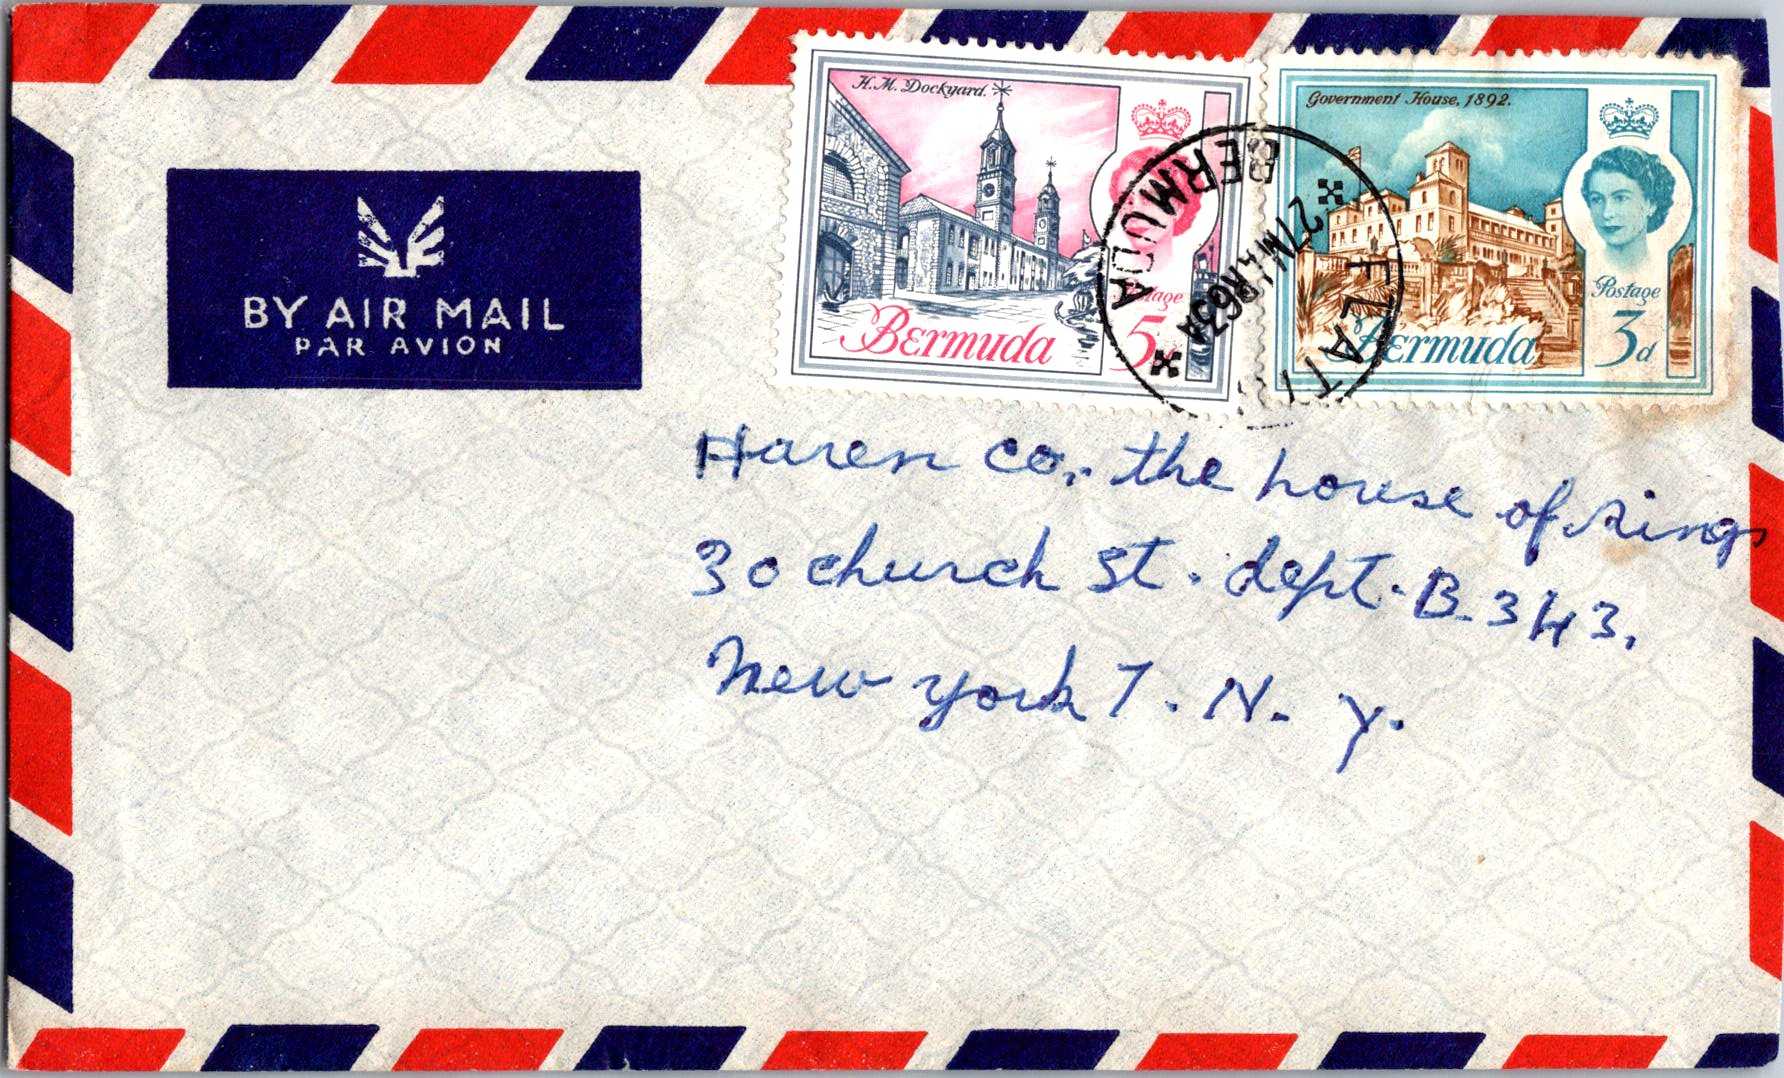 H.M. Dockyard.
Postage
5
Bermuda
Government House, 1892.
Postage
3d
Bermuda
BERMUDA
27 MAR 63
FLATT
BY AIR MAIL
PAR AVION
Haren co. the house of rings
30 church St. dept. B-343.
New york 7. N. Y.